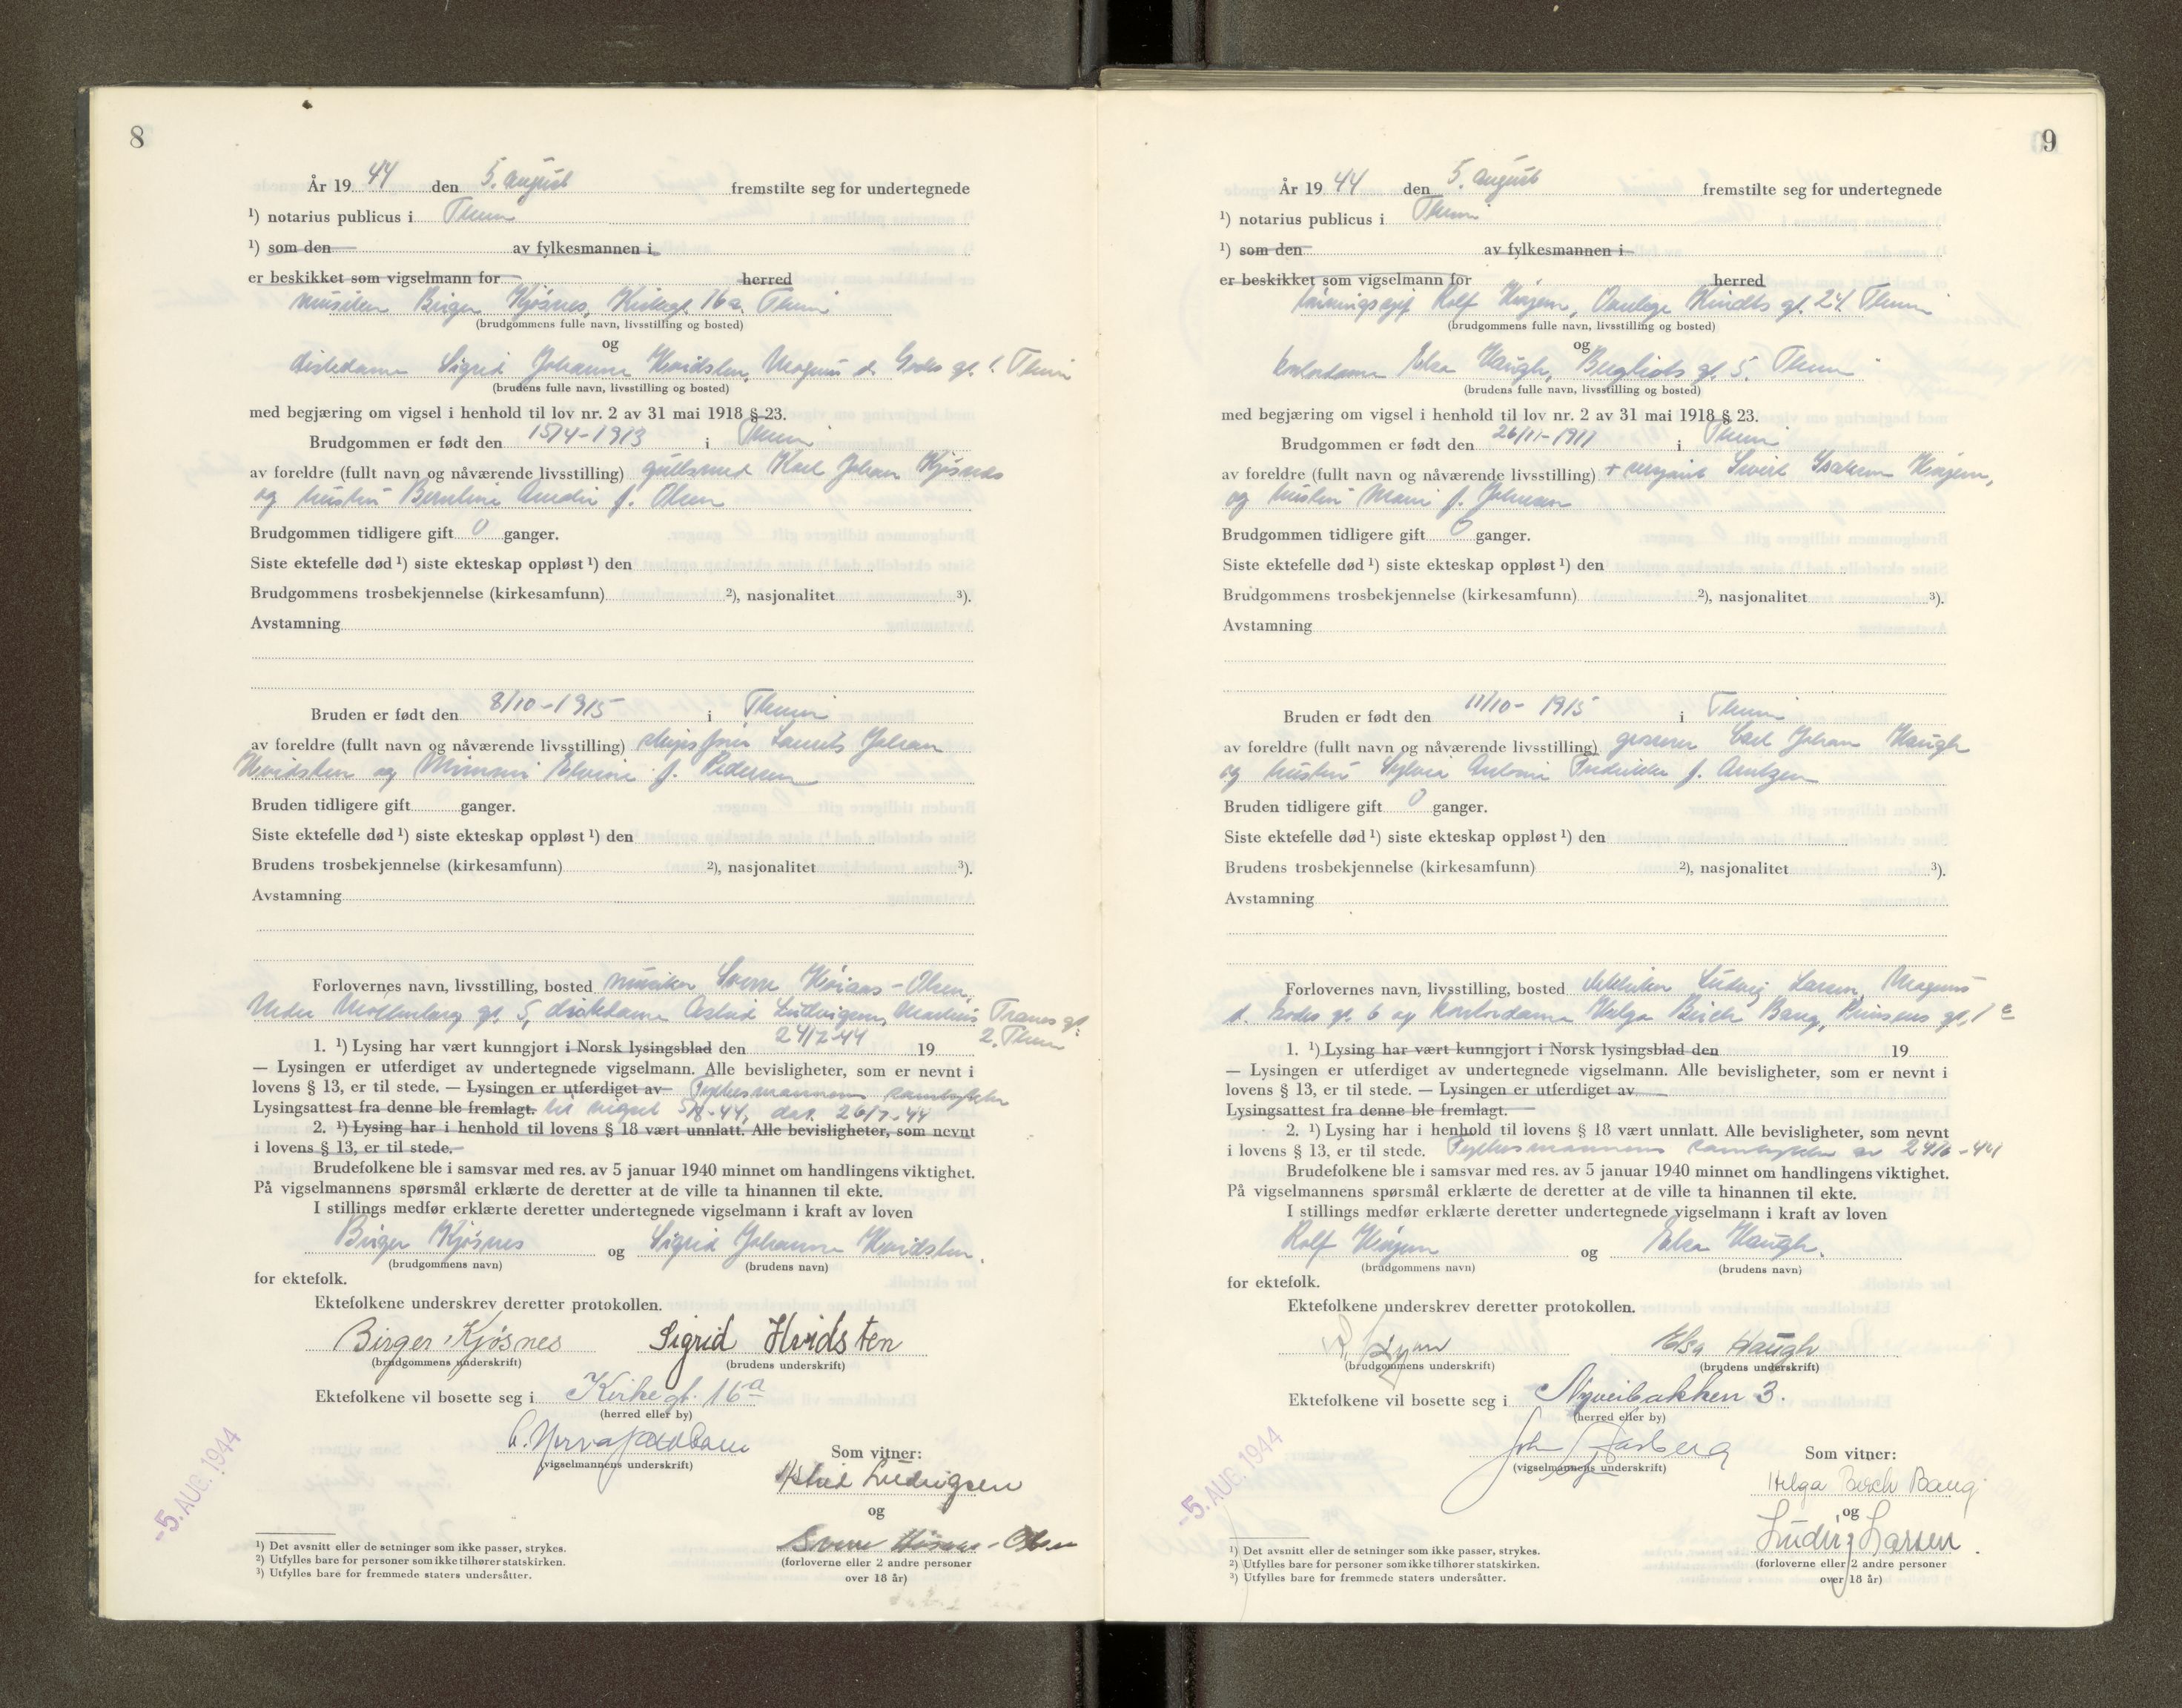 8
År 19 44 den 5. august fremstilte seg for undertegnede
¹) notarius publicus i Thm
¹) som den av fylkesmannen i
er beskikket som vigselmann for herred
musiker Birger Kjösnes, Kirkegt. 16a. Thm
(brudgommens fulle navn, livsstilling og bosted)
og
diskedame Sigrid Johanne Hvidsten, Magnus d. Godes gt. 1. Thm
(brudens fulle navn, livsstilling og bosted)
med begjæring om vigsel i henhold til lov nr. 2 av 31 mai 1918 § 23.
Brudgommen er født den 15/4-1913 i Thm
av foreldre (fullt navn og nåværende livsstilling) gullsmed Karl Johan Kjösnes
og hustru Berntine Amalie f. Olsen
Brudgommen tidligere gift 0 ganger.
Siste ektefelle død ¹) siste ekteskap oppløst ¹) den
Brudgommens trosbekjennelse (kirkesamfunn) ²), nasjonalitet ³).
Avstamning
Bruden er født den 8/10-1915 i Thm
av foreldre (fullt navn og nåværende livsstilling) Johan
Hvidsten og Elvine f. Pedersen
Bruden tidligere gift ganger.
Siste ektefelle død ¹) siste ekteskap oppløst ¹) den
Brudens trosbekjennelse (kirkesamfunn) ²), nasjonalitet ³).
Avstamning
Forlovernes navn, livsstilling, bosted musiker Sverre -Olsen,
Nedre Møllenberg gt. 5, diskedame Astrid Ludvigsen, Tranes gt.
2. Thm
1. ¹) Lysing har vært kunngjort i Norsk lysingsblad den 24/7-44 19
— Lysingen er utferdiget av undertegnede vigselmann. Alle bevisligheter, som er nevnt i
lovens § 13, er til stede. — Lysingen er utferdiget av Fylkesmannens samtykke
Lysingsattest fra denne ble fremlagt. til vigsel 5/8-44, dat. 26/7-44
2. ¹) Lysing har i henhold til lovens § 18 vært unnlatt. Alle bevisligheter, som nevnt
i lovens § 13, er til stede.
Brudefolkene ble i samsvar med res. av 5 januar 1940 minnet om handlingens viktighet.
På vigselmannens spørsmål erklærte de deretter at de ville ta hinannen til ekte.
I stillings medfør erklærte deretter undertegnede vigselmann i kraft av loven
Birger Kjösnes og Sigrid Johanne Hvidsten.
(brudgommens navn) (brudens navn)
for ektefolk.
Ektefolkene underskrev deretter protokollen.
Birger Kjösnes Sigrid Hvidsten
(brudgommens underskrift) (brudens underskrift)
Ektefolkene vil bosette seg i Kirkegt. 16a
(herred eller by)
(vigselmannens underskrift)
Som vitner:
Astrid Ludvigsen
og
Sverre -Olsen
(forloverne eller 2 andre personer
over 18 år)
-5. AUG. 1944
¹) Det avsnitt eller de setninger som ikke passer, strykes.
²) Utfylles bare for personer som ikke tilhører statskirken.
³) Utfylles bare for fremmede staters undersåtter.
9
År 19 44 den 5. august fremstilte seg for undertegnede
¹) notarius publicus i Thm
¹) som den av fylkesmannen i
er beskikket som vigselmann for herred
Rolf Kvæjem, Overlege Kindts gt. 24. Thm
(brudgommens fulle navn, livsstilling og bosted)
og
kontordame Elsa Haugh, Bergliots gt. 5. Thm
(brudens fulle navn, livsstilling og bosted)
med begjæring om vigsel i henhold til lov nr. 2 av 31 mai 1918 § 23.
Brudgommen er født den 26/11-1911 i Thm
av foreldre (fullt navn og nåværende livsstilling) + sersjant
og hustru f. Johnsen
Brudgommen tidligere gift 0 ganger.
Siste ektefelle død ¹) siste ekteskap oppløst ¹) den
Brudgommens trosbekjennelse (kirkesamfunn) ²), nasjonalitet ³).
Avstamning
Bruden er født den 11/10-1915 i Thm
av foreldre (fullt navn og nåværende livsstilling) graverer Carl Johan Haugh
og hustru Sylvia Antonie Fredrikke f. Arntzen
Bruden tidligere gift 0 ganger.
Siste ektefelle død ¹) siste ekteskap oppløst ¹) den
Brudens trosbekjennelse (kirkesamfunn) ²), nasjonalitet ³).
Avstamning
Forlovernes navn, livsstilling, bosted Ludvig Larsen, Magnus
d. Godes gt. 6 og kontordame Helga Birch Bang,
1. ¹) Lysing har vært kunngjort i Norsk lysingsblad den 19
— Lysingen er utferdiget av undertegnede vigselmann. Alle bevisligheter, som er nevnt i
lovens § 13, er til stede. — Lysingen er utferdiget av
Lysingsattest fra denne ble fremlagt.
2. ¹) Lysing har i henhold til lovens § 18 vært unnlatt. Alle bevisligheter, som nevnt
i lovens § 13, er til stede. Fylkesmannens samtykke av 24/6-44
Brudefolkene ble i samsvar med res. av 5 januar 1940 minnet om handlingens viktighet.
På vigselmannens spørsmål erklærte de deretter at de ville ta hinannen til ekte.
I stillings medfør erklærte deretter undertegnede vigselmann i kraft av loven
Rolf og Elsa Haugh.
(brudgommens navn) (brudens navn)
for ektefolk.
Ektefolkene underskrev deretter protokollen.
Elsa Haugh
(brudgommens underskrift) (brudens underskrift)
Ektefolkene vil bosette seg i Nyveibakken 3.
(herred eller by)
John
(vigselmannens underskrift)
Som vitner:
Helga Birch Bang
og
Ludvig Larsen.
(forloverne eller 2 andre personer
over 18 år)
-5. AUG. 1944
¹) Det avsnitt eller de setninger som ikke passer, strykes.
²) Utfylles bare for personer som ikke tilhører statskirken.
³) Utfylles bare for fremmede staters undersåtter.